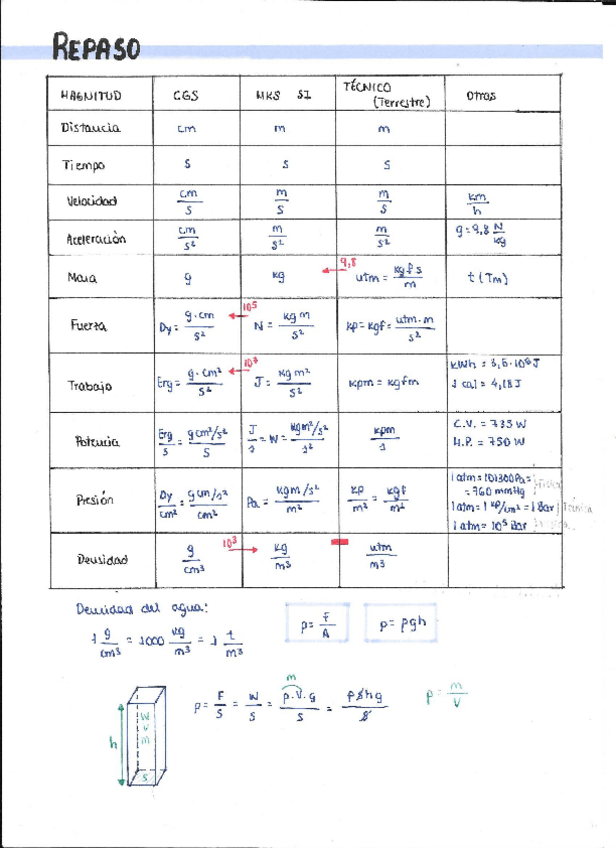 REPASO
MAGNITUD CGS MKS SI TÉCNICO (Terrestre) Otras
Distancia cm m m
Tiempo s s s
Velocidad cm/s m/s m/s km/h
Aceleración cm/s² m/s² m/s² g = 9,8 N/kg
Masa g kg 9,8 utm = kgf s/m t (Tm)
Fuerza Dy = g·cm/s² 10⁵ N = kg m/s² kp = kgf = utm·m/s²
Trabajo Erg = g·cm²/s² 10⁷ J = kg m²/s² kpm = kgfm kWh = 3,6·10⁶ J
1 cal = 4,18 J
Potencia Erg/s = g cm²/s²/s J/s = W = kg m²/s²/s² kpm/s C.V. = 735 W
H.P. = 750 W
Presión Dy/cm² = g cm/s²/cm² Pa = kg m/s²/m² kp/m² = kgf/m² 1 atm = 101300 Pa =
= 760 mmHg
1 atm = 1 kp/cm² = 1 Bar
1 atm = 10⁵ Bar
Densidad g/cm³ 10³ kg/m³ utm/m³
Densidad del agua:
1 g/cm³ = 1000 kg/m³ = 1 t/m³
p = F/A
p = ρgh
m
p = F/S = W/S = ρ·V·g/S = ρShg/S
ρ = m/V
h
W
V
m
S